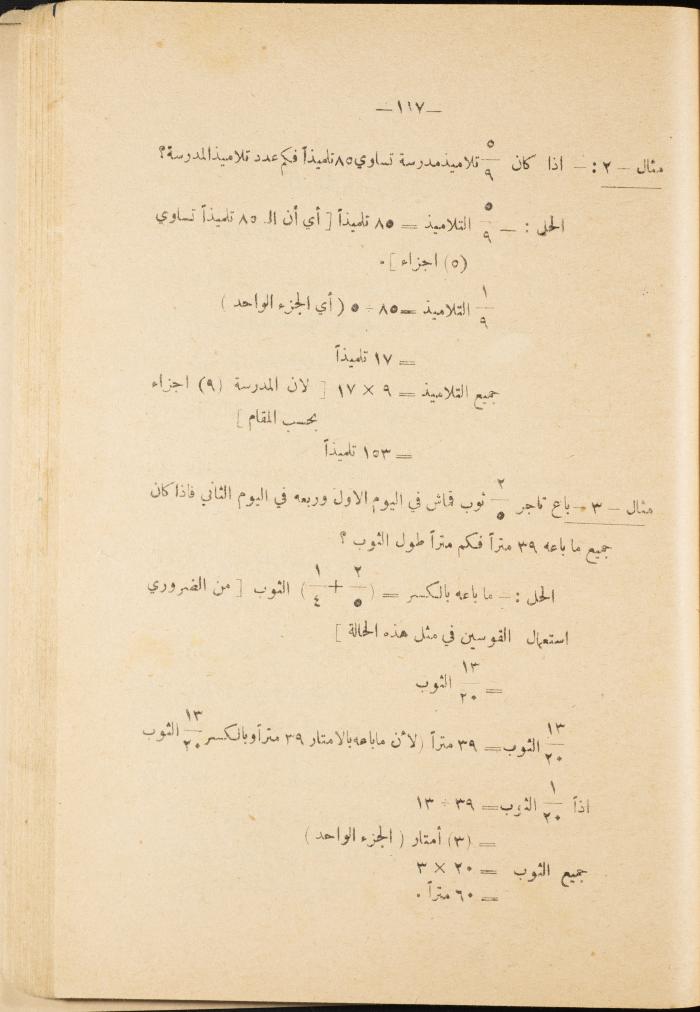 —١١٧—
مثال — ٢ : — اذا كان ٥/٩ تلاميذ مدرسة تساوي ٨٥ تلميذاً فكم عدد تلاميذ المدرسة؟
الحل : — ٥/٩ التلاميذ = ٨٥ تلميذاً [ أي أن الـ ٨٥ تلميذاً تساوي
(٥) اجزاء ] .
١/٩ التلاميذ = ٨٥ ÷ ٥ ( أي الجزء الواحد )
= ١٧ تلميذاً
جميع التلاميذ = ٩ × ١٧ [ لان المدرسة (٩) اجزاء
بحسب المقام ]
= ١٥٣ تلميذاً
مثال — ٣ — باع تاجر ٢/٥ ثوب قماش في اليوم الاول وربعه في اليوم الثاني فاذا كان
جميع ما باعه ٣٩ متراً فكم متراً طول الثوب ؟
الحل : — ما باعه بالكسر = ( ٢/٥ + ١/٤ ) الثوب [ من الضروري
استعمال القوسين في مثل هذه الحالة ]
= ١٣/٢٠ الثوب
١٣/٢٠ الثوب = ٣٩ متراً ( لأن ماباعه بالامتار ٣٩ متراً وبالكسر ١٣/٢٠ الثوب
اذاً ١/٢٠ الثوب = ٣٩ ÷ ١٣
= (٣) أمتار ( الجزء الواحد )
جميع الثوب = ٢٠ × ٣
= ٦٠ متراً .